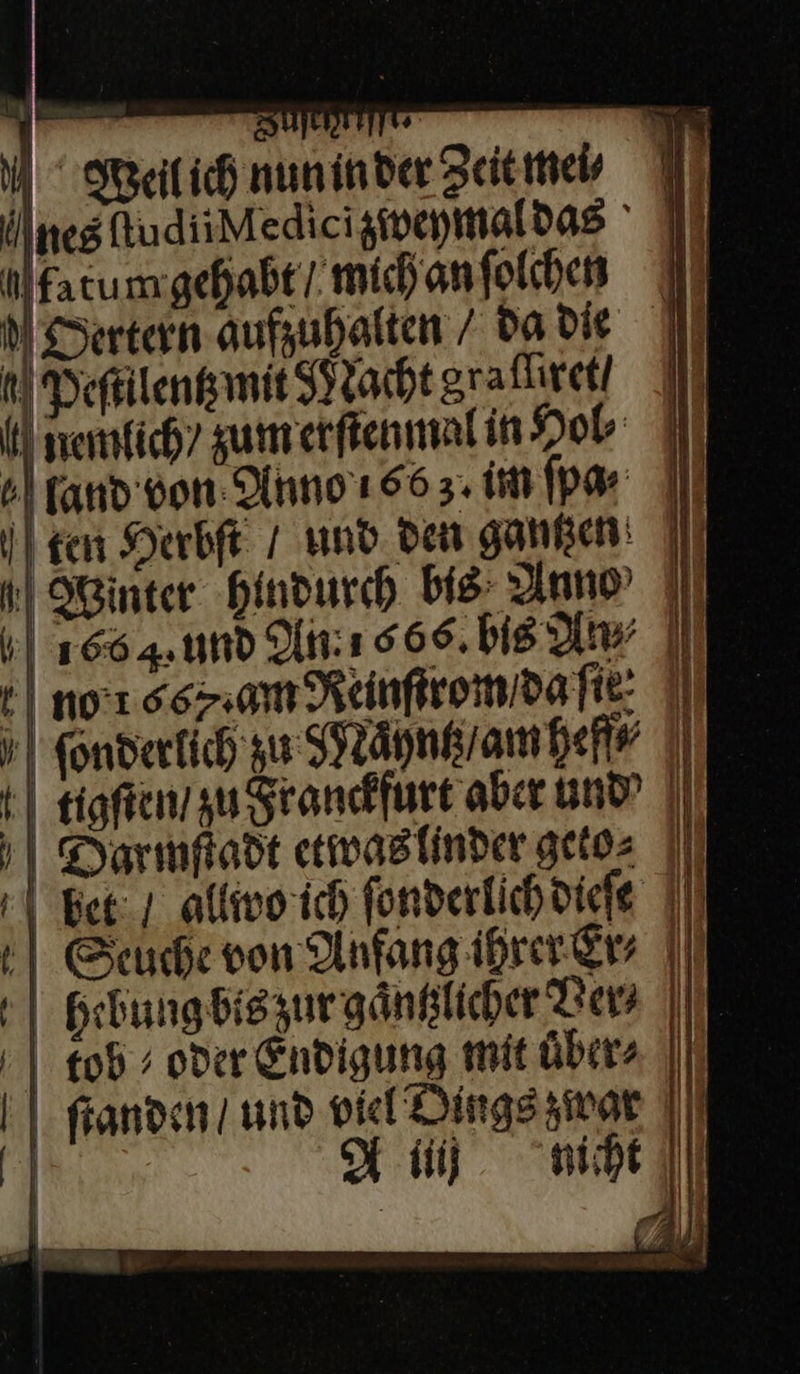 Zuschrifft.
Weil ich nun in der Zeit mei⸗
nes ſtudii Medici zweymal das
fatum gehabt / mich an ſolchen
Oertern aufzuhalten / da die
Peſtilentz mit Macht graſſiret /
nemlich / zum erſtenmal in Hol⸗
land von Anno 1663. im ſpa⸗
ten Herbſt / und den gantzen
Winter hindurch bis Anno
1664. und An. 1666. bis An⸗
no 1667. am Reinſtrom / da ſie
ſonderlich zu Maͤyntz / am heff⸗
tigſten / zu Franckfurt aber und
Darmſtadt etwas linder geto⸗
bet / allwo ich ſonderlich dieſe
Seuche von Anfang ihrer Er⸗
hebung bis zur gaͤntzlicher Ver⸗
tob⸗ oder Endigung mit uͤber⸗
ſtanden / und viel Dings zwar
A iiij nicht